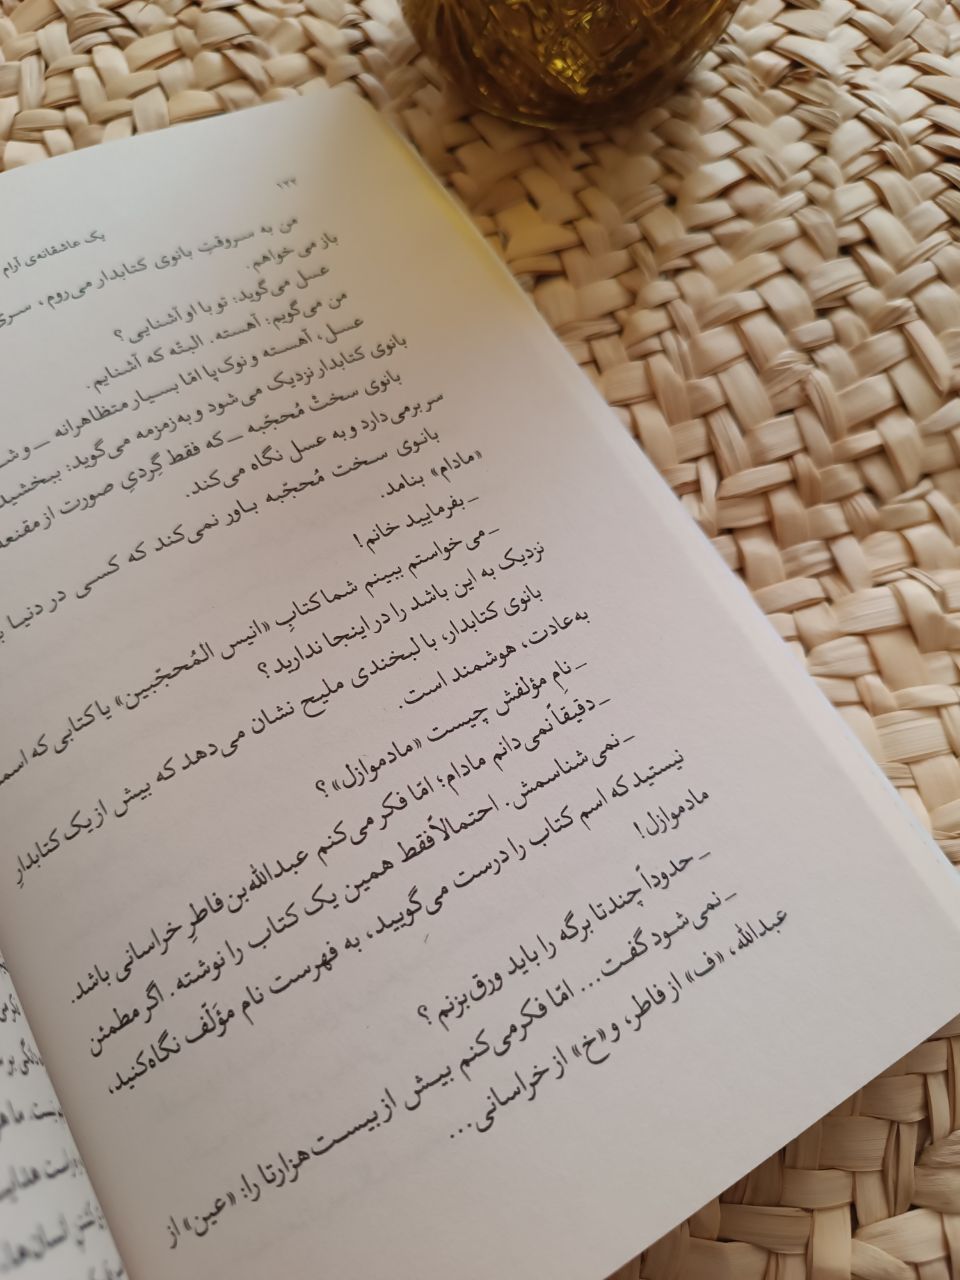 ۱۳۳
یک عاشقانه‌ی آرام
من به سروقتِ بانوی کتابدار می‌روم، سری
باز می خواهم.
عسل می‌گوید: تو با او آشنایی؟
من می‌گویم: آهسته. البتّه که آشنایم.
عسل، آهسته و نوک‌پا امّا بسیار متظاهرانه ــ و
بانوی کتابدار نزدیک می‌شود و به‌زمزمه می‌گوید: ببخشید
بانوی سختْ مُحجّبه ــ که فقط گِردیِ صورت از مقنعه
سر برمی دارد و به عسل نگاه می‌کند.
بانوی سخت مُحجّبه باور نمی‌کند که کسی در دنیا
«مادام» بنامد.
ــ بفرمایید خانم!
ــ می‌خواستم ببینم شما کتابِ «انیس المُحجّبین» یا کتابی که
نزدیک به این باشد را در اینجا ندارید؟
بانوی کتابدار، با لبخندی ملیح نشان می‌دهد که بیش از یک کتابدارِ
به‌عادت، هوشمند است.
ــ نامِ مؤلفش چیست «مادموازل»؟
ــ دقیقاً نمی‌دانم مادام؛ امّا فکر می‌کنم عبدالله‌بن فاطرِ خراسانی باشد.
ــ نمی‌شناسمش. احتمالاً فقط همین یک کتاب را نوشته. اگر مطمئن
نیستید که اسم کتاب را درست می‌گویید، به فهرست نام مؤلّف نگاه‌کنید،
مادموازل!
ــ حدوداً چندتا برگه را باید ورق‌بزنم؟
ــ نمی‌شود گفت... امّا فکرمی‌کنم بیش از بیست‌هزارتا را: «عین» از
عبدالله، «ف» از فاطر، و «خ» از خراسانی...